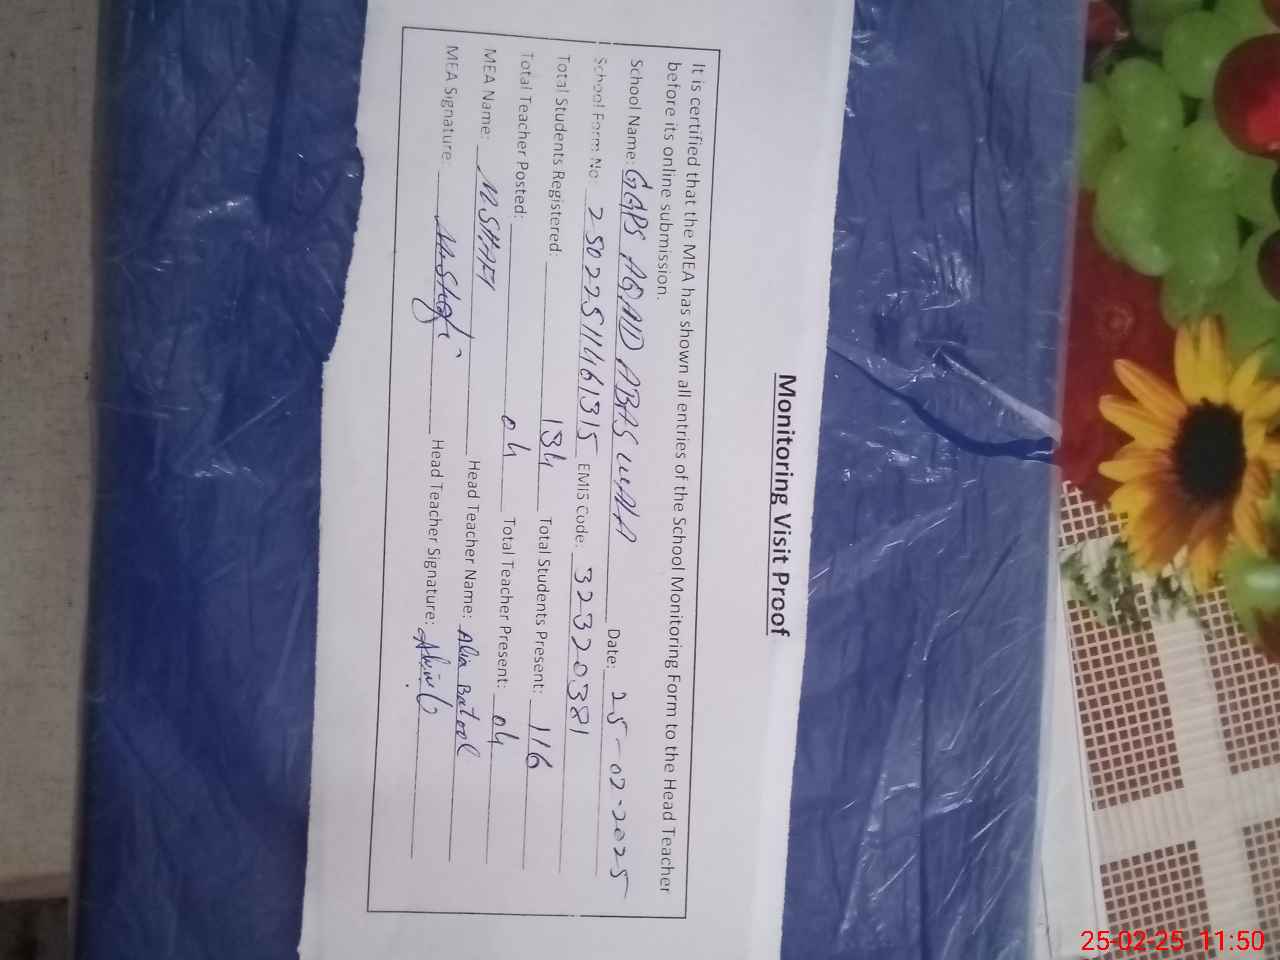 Monitoring Visit Proof
It is certified that the MEA has shown all entries of the School Monitoring Form to the Head Teacher
before its online submission.
School Name: GGPS AQAID ABAS WALA Date: 25-02-2025
School Form No: 25022511461315 EMIS Code: 32320381
Total Students Registered: 184 Total Students Present: 116
Total Teacher Posted: 04 Total Teacher Present: 04
MEA Name: M SHAFI Head Teacher Name: Alia Batool
MEA Signature: M. Shafi Head Teacher Signature:
25-02-25 11:50